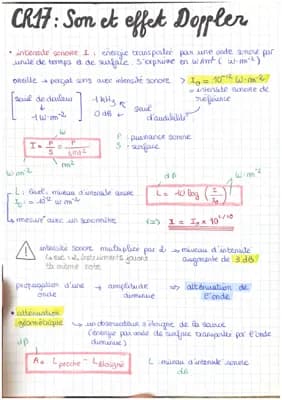 CR17 : Son et effet Doppler
• intensité sonore I : énergie transportée par une onde sonore par
unité de temps et de surface. S'exprime en W/m² ( W·m⁻²)
oreille → perçoit sons avec intensité sonore > I₀ = 10⁻¹² W·m⁻²
= intensité sonore de
référence
seuil de douleur
→ 1 W·m⁻²
→ 1 kHz
0 dB ← seuil
d'audibilité
W
I = P/S = P/4πd²
m²
W·m⁻²
P : puissance sonore
S : surface
dB
W·m⁻²
L = 10 log (I/I₀)
L : niveau d'intensité sonore
I₀ = 10⁻¹² W·m⁻²
→ mesuré avec un sonomètre
<=> I = I₀ × 10^L/10
! intensité sonore multipliée par 2 → niveau d'intensité
2 instruments jouent
augmente de 3 dB
la même note
propagation d'une → amplitude => atténuation de
onde
diminue
l'onde
• atténuation
géométrique → un observateur s'éloigne de la source
(énergie par unité de surface transportée par l'onde
diminue)
dB
A = L proche - L éloigné
L : niveau d'intensité sonore
dB